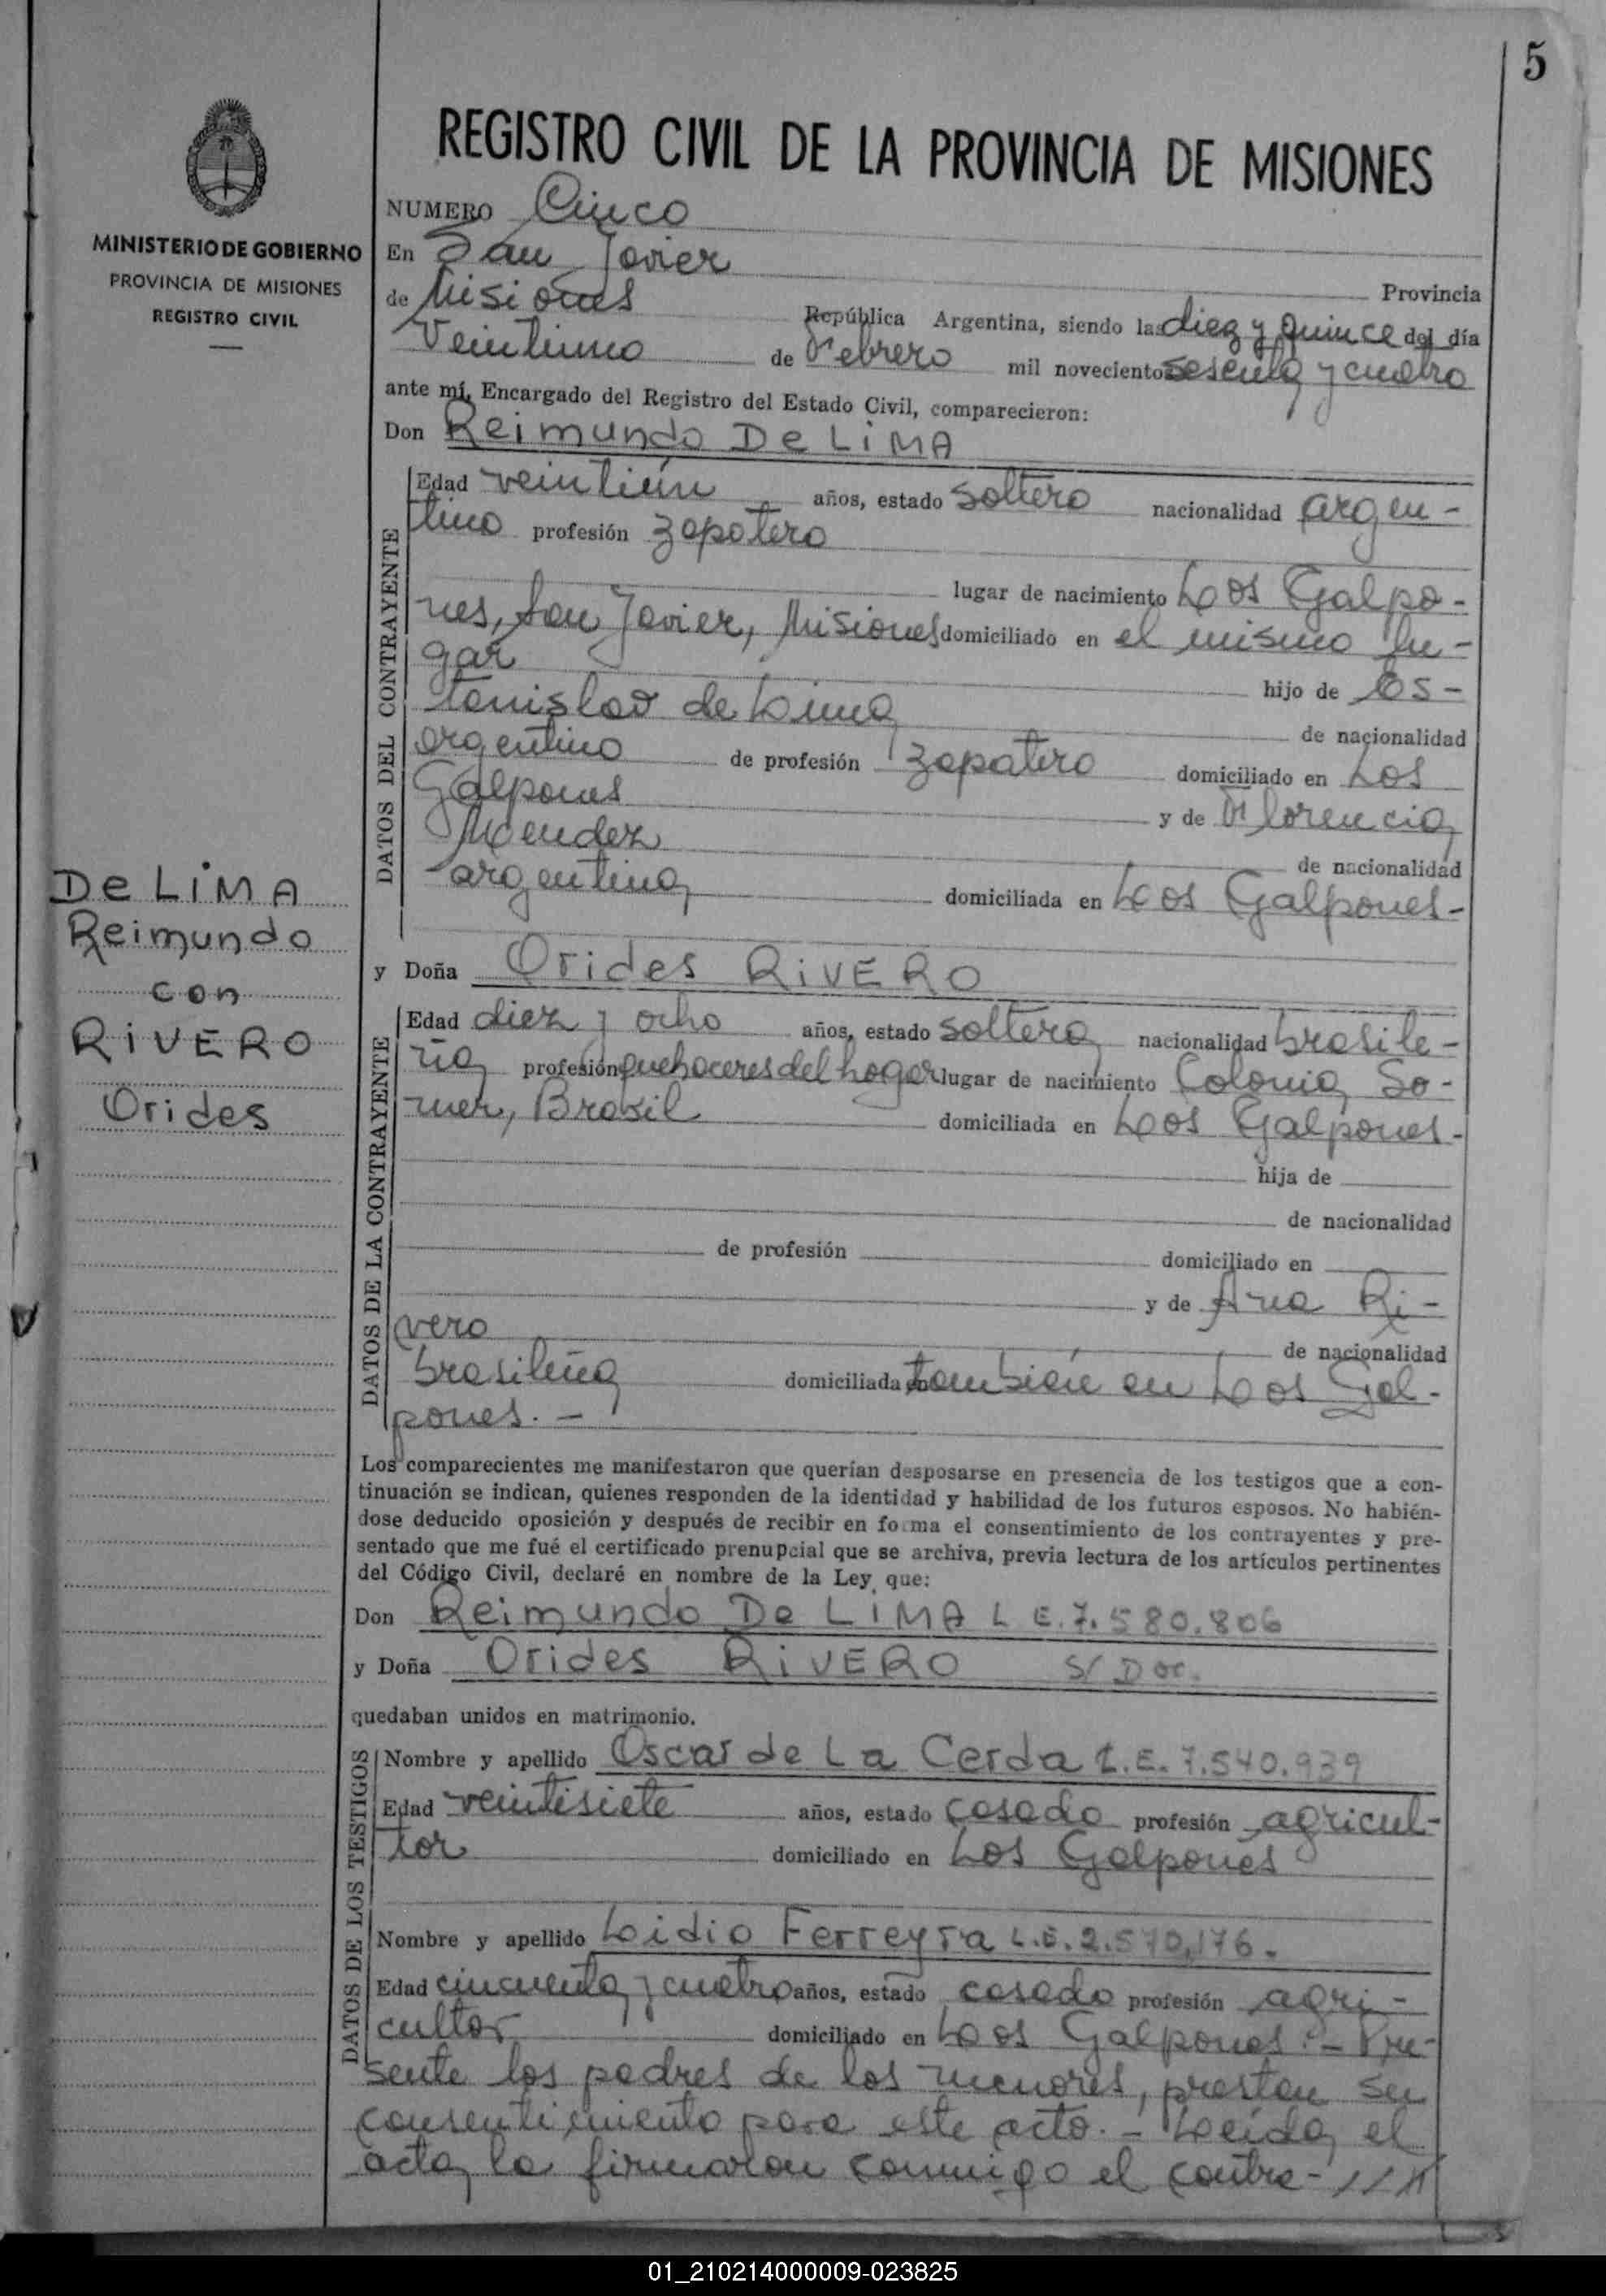 5
REGISTRO CIVIL DE LA PROVINCIA DE MISIONES
MINISTERIO DE GOBIERNO
PROVINCIA DE MISIONES
REGISTRO CIVIL
NUMERO Cinco
En San Javier
Provincia
de Misiones República Argentina, siendo las diez y quince del día
Veintiuno de Febrero mil novecientos sesenta y cuatro
ante mí, Encargado del Registro del Estado Civil, comparecieron:
Don Reimundo De LiMA
DATOS DEL CONTRAYENTE
Edad veintiún años, estado soltero nacionalidad argen-
tino profesión zapatero
lugar de nacimiento Los Galpo-
nes, San Javier, Misiones domiciliado en el mismo lu-
gar hijo de Es-
tanislao de Lima de nacionalidad
argentino de profesión zapatero domiciliado en Los
Galpones y de Florencia
Mendez de nacionalidad
argentina domiciliada en Los Galpones-
De LiMA
Reimundo
con
RiVERO
Orides
y Doña Orides RiVERO
DATOS DE LA CONTRAYENTE
Edad diez y ocho años, estado soltera nacionalidad brasile-
ña profesión quehaceres del hogar lugar de nacimiento Colonia So-
mer, Brasil domiciliada en Los Galpones-
hija de
de nacionalidad
de profesión domiciliado en
y de Ana Ri-
vero de nacionalidad
brasileña domiciliada en también en Los Gal-
pones.-
Los comparecientes me manifestaron que querían desposarse en presencia de los testigos que a con-
tinuación se indican, quienes responden de la identidad y habilidad de los futuros esposos. No habién-
dose deducido oposición y después de recibir en forma el consentimiento de los contrayentes y pre-
sentado que me fué el certificado prenupcial que se archiva, previa lectura de los artículos pertinentes
del Código Civil, declaré en nombre de la Ley que:
Don Reimundo De LiMA L E. 7.580.806
y Doña Orides RiVERO S/ Doc.
quedaban unidos en matrimonio.
DATOS DE LOS TESTIGOS
Nombre y apellido Oscar de La Cerda L.E. 7.540.939
Edad veintisiete años, estado casado profesión agricul-
tor domiciliado en Los Galpones
Nombre y apellido Lidio Ferreyra L.E. 2.570.176.
Edad cincuenta y cuatro años, estado casado profesión agri-
cultor domiciliado en Los Galpones.- Pre-
sente los padres de los menores, prestan su
consentimiento para este acto.- Leída el
acta, la firmaron conmigo el contra-///
01_210214000009-023825